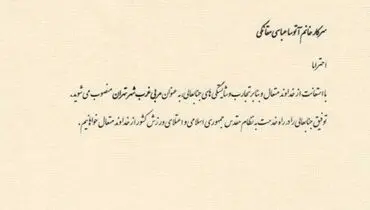 سرکار خانم آتوسا عباسی متقالکی
احتراما
با استعانت از خداوند متعال و بنابر تجارب و شایستگی های جنابعالی، به عنوان مربی غرب شهر تهران منصوب می شوید.
توفیق جنابعالی را در راه خدمت به نظام مقدس جمهوری اسلامی و اعتلای ورزش کشور از خداوند متعال خواهانیم.